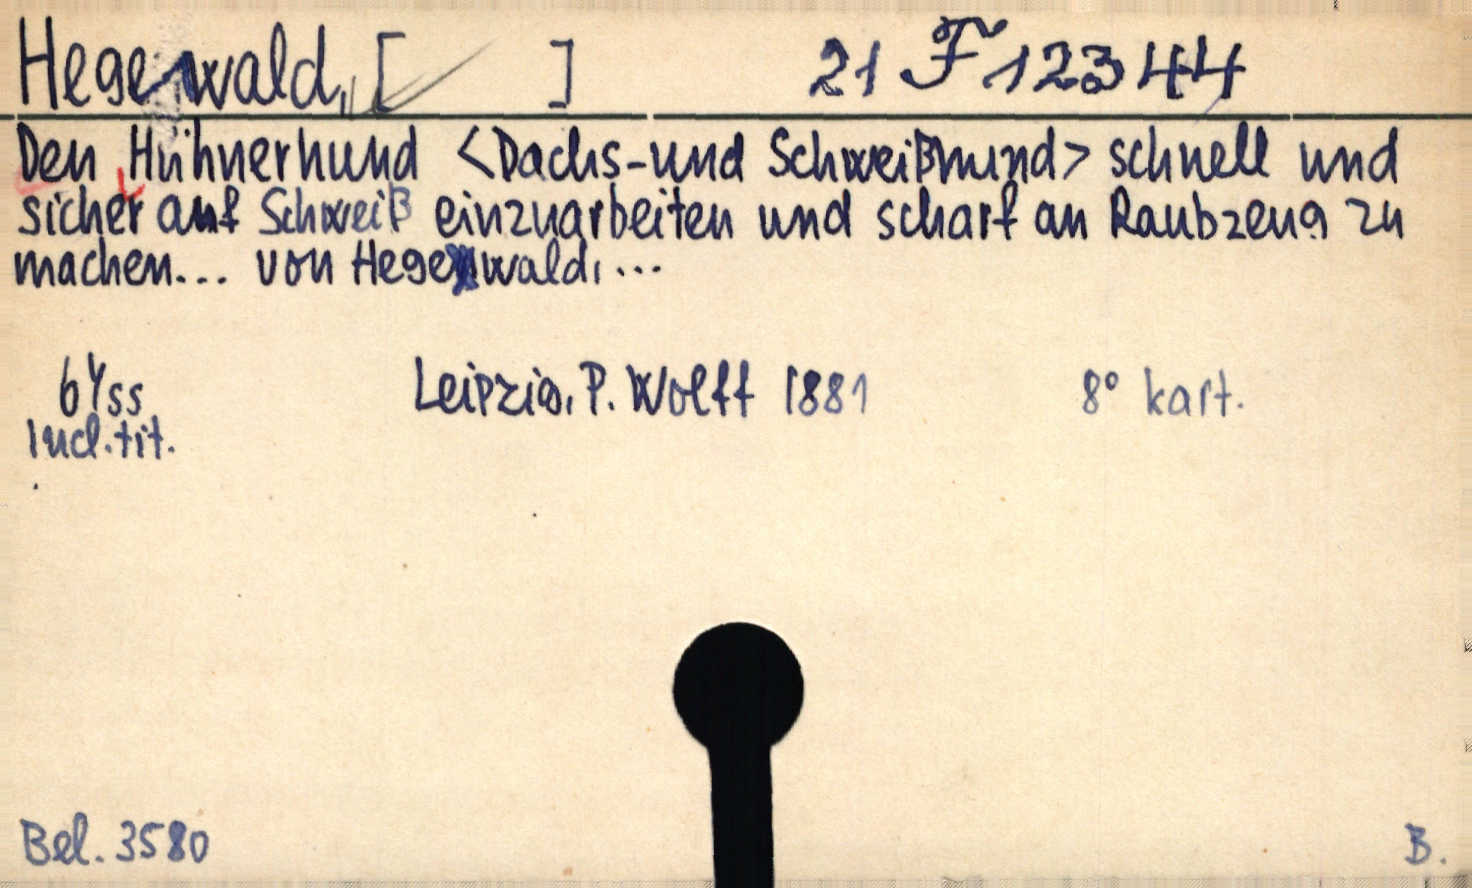 Hegewald, [ ] 21 F 12344
Den Hühnerhund <Dachs-und Schweißhund> schnell und
sicher auf Schweiß einzuarbeiten und scharf an Raubzeug zu
machen... von Hegewald, ...
Leipzig, P. Wolff 1881 8° kart.
incl. tit.
Bel. 3580
B.